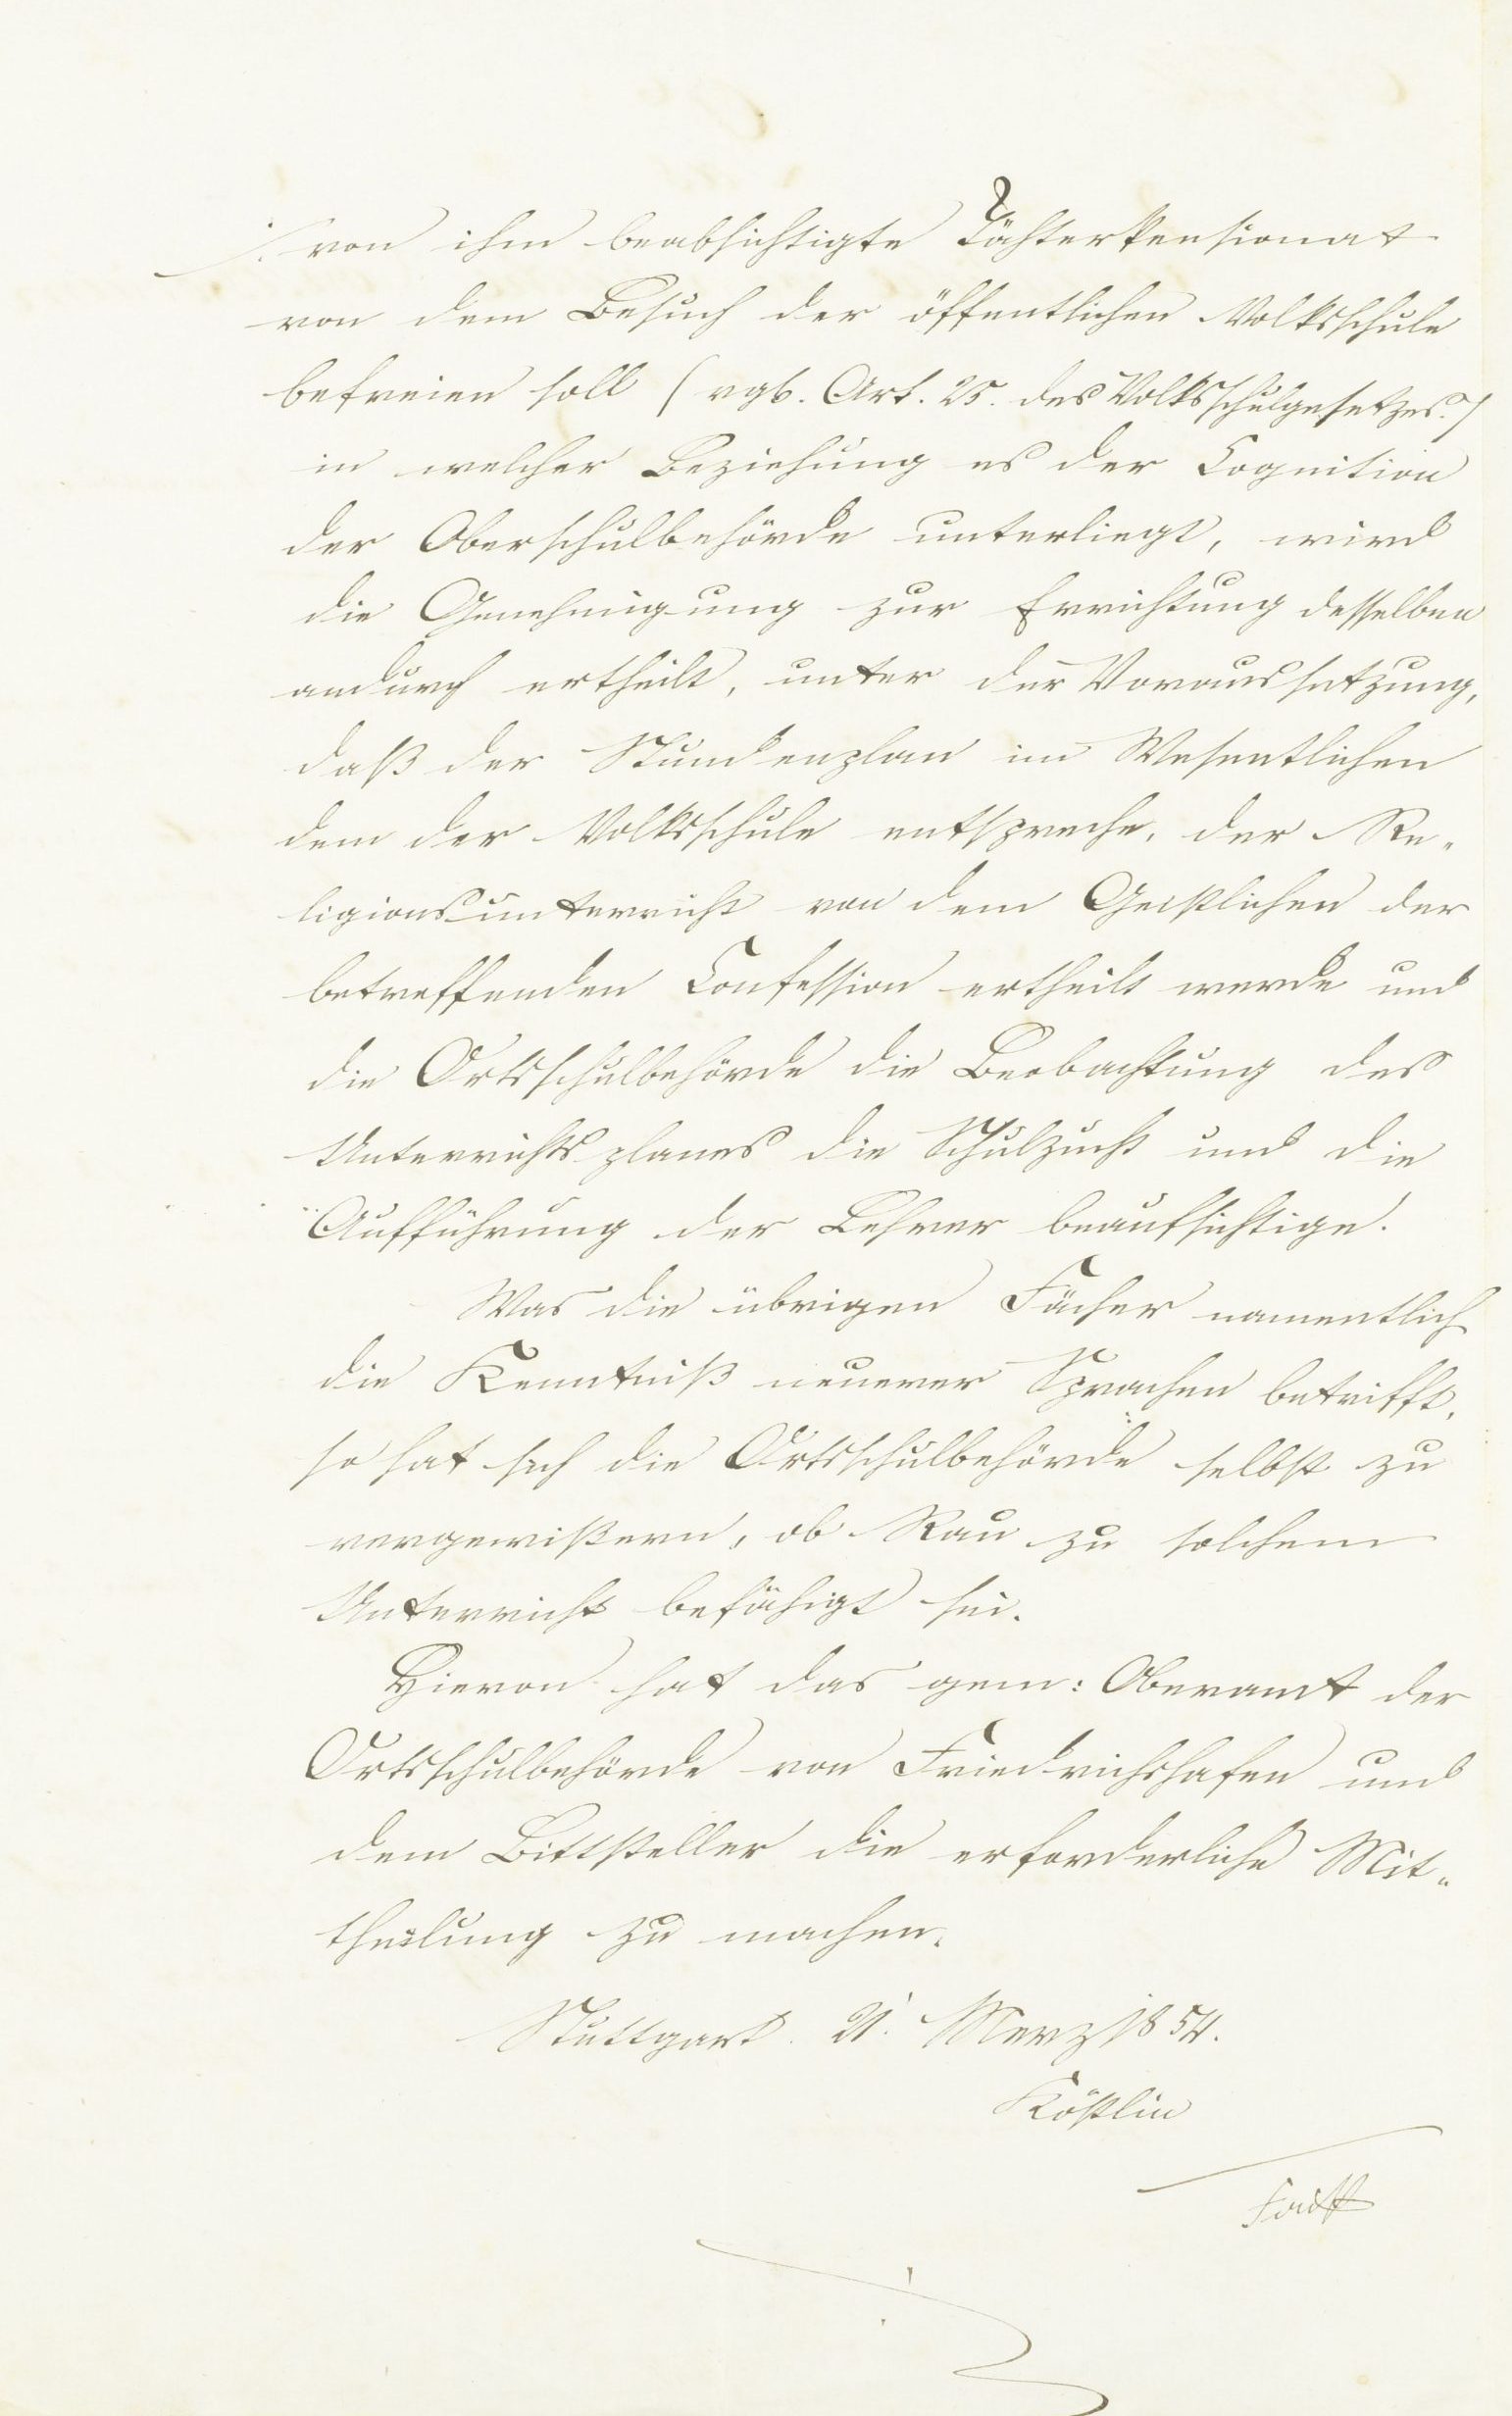 von ihm beabsichtigte Töchterpensionat
von dem Besuch der öffentlichen Volksschule
befreien soll (vgl. Art. 25. des Volksschulgesetzes.)
in welcher Beziehung es der Cognition
der Oberschulbehörde unterliegt, wird
die Genehmigung zur Errichtung desselben
andurch ertheilt, unter der Voraussetzung,
daß der Stundenplan im Wesentlichen
dem der Volksschule entspreche, der Re„
ligionsunterricht von dem Geistlichen der
betreffenden Confession ertheilt werde und
die Ortsschulbehörde die Beobachtung des
Unterrichtsplanes die Schulzucht und die
Aufführung der Lehrer beaufsichtige.
Was die übrigen Fächer namentlich
die Kenntniß neuerer Sprachen betrifft,
so hat sich die Ortsschulbehörde selbst zu
vergewißern, ob Rau zu solchem
Unterricht befähigt sei.
Hievon hat das gem: Oberamt der
Ortsschulbehörde von Friedrichshafen und
dem Bittsteller die erforderliche Mit„
theilung zu machen.
Stuttgart. 21. Merz 1854.
Köstlin